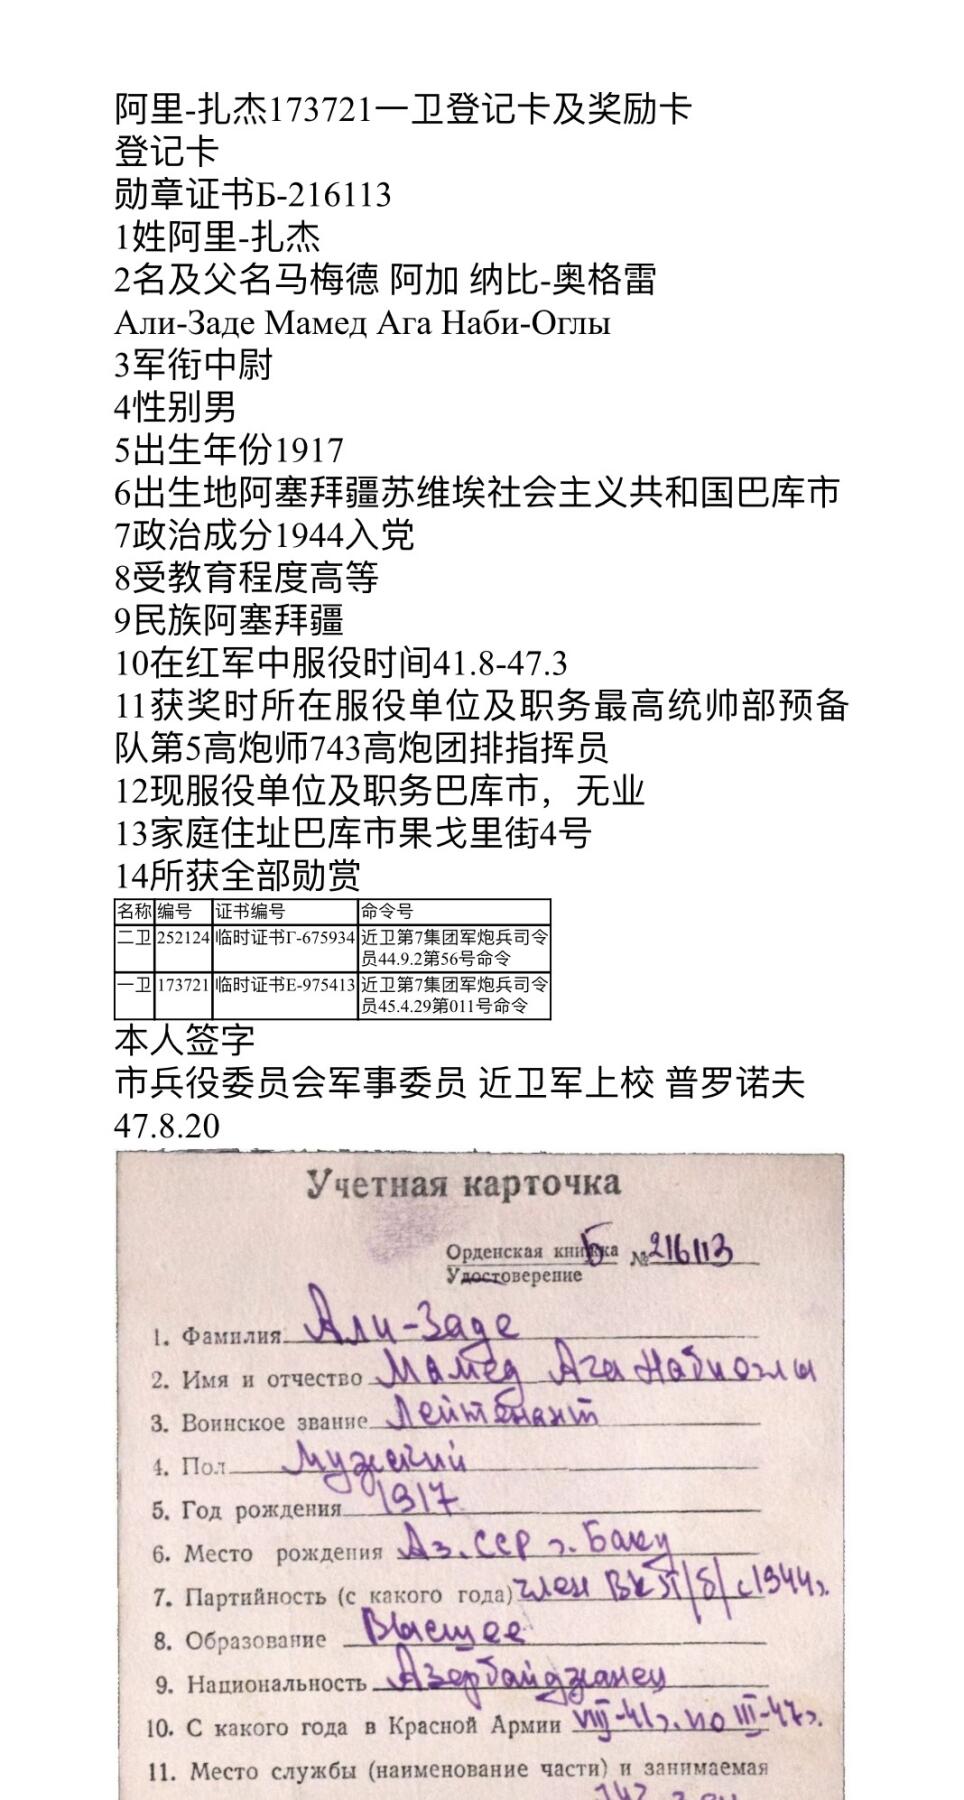 阿里-扎杰173721一卫登记卡及奖励卡
登记卡
勋章证书Б-216113
1姓阿里-扎杰
2名及父名马梅德 阿加 纳比-奥格雷
Али-Заде Мамед Ага Наби-Оглы
3军衔中尉
4性别男
5出生年份1917
6出生地阿塞拜疆苏维埃社会主义共和国巴库市
7政治成分1944入党
8受教育程度高等
9民族阿塞拜疆
10在红军中服役时间41.8-47.3
11获奖时所在服役单位及职务最高统帅部预备
队第5高炮师743高炮团排指挥员
12现服役单位及职务巴库市，无业
13家庭住址巴库市果戈里街4号
14所获全部勋赏
名称 编号 证书编号 命令号
二卫 252124 临时证书Г-675934 近卫第7集团军炮兵司令
员44.9.2第56号命令
一卫 173721 临时证书Е-975413 近卫第7集团军炮兵司令
员45.4.29第011号命令
本人签字
市兵役委员会军事委员 近卫军上校 普罗诺夫
47.8.20
Учетная карточка
Орденская книжка Б №216113
Удостоверение
1. Фамилия Али-Заде
2. Имя и отчество Мамед Ага Набиоглы
3. Воинское звание Лейтенант
4. Пол Мужский
5. Год рождения 1917
6. Место рождения Аз.ССР г. Баку
7. Партийность (с какого года) член ВКП/б/ с 1944г.
8. Образование Высшее
9. Национальность Азербайджанец
10. С какого года в Красной Армии VIII-41г. по III-47г.
11. Место службы (наименование части) и занимаемая